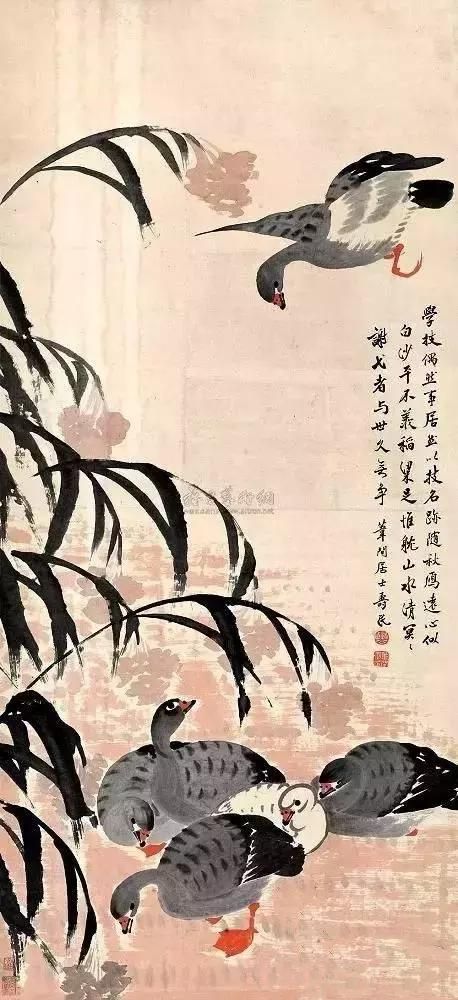 學技偶然事居然以技名跡隨秋鴈遠心似
白沙平不羨稻粱足惟躭山水清冥〻
謝弋者与世久無争
葦间居士壽民